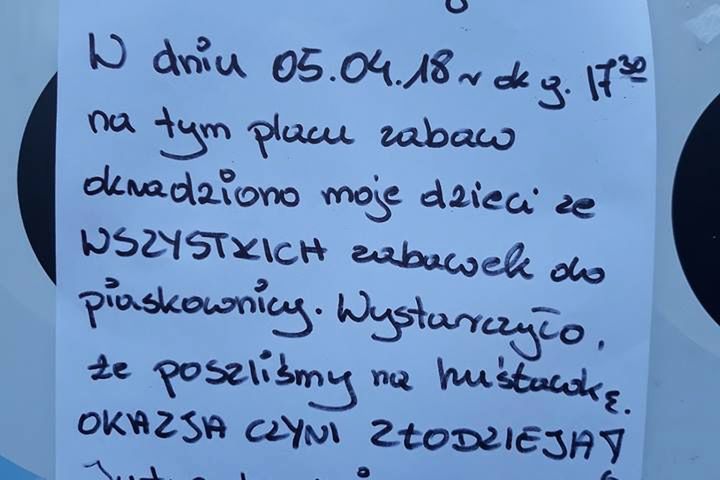 W dniu 05.04.18r ok g. 17³⁰
na tym placu zabaw
okradziono moje dzieci ze
WSZYSTKICH zabawek do
piaskownicy. Wystarczyło,
że poszliśmy na huśtawkę.
OKAZJA CZYNI ZŁODZIEJA!